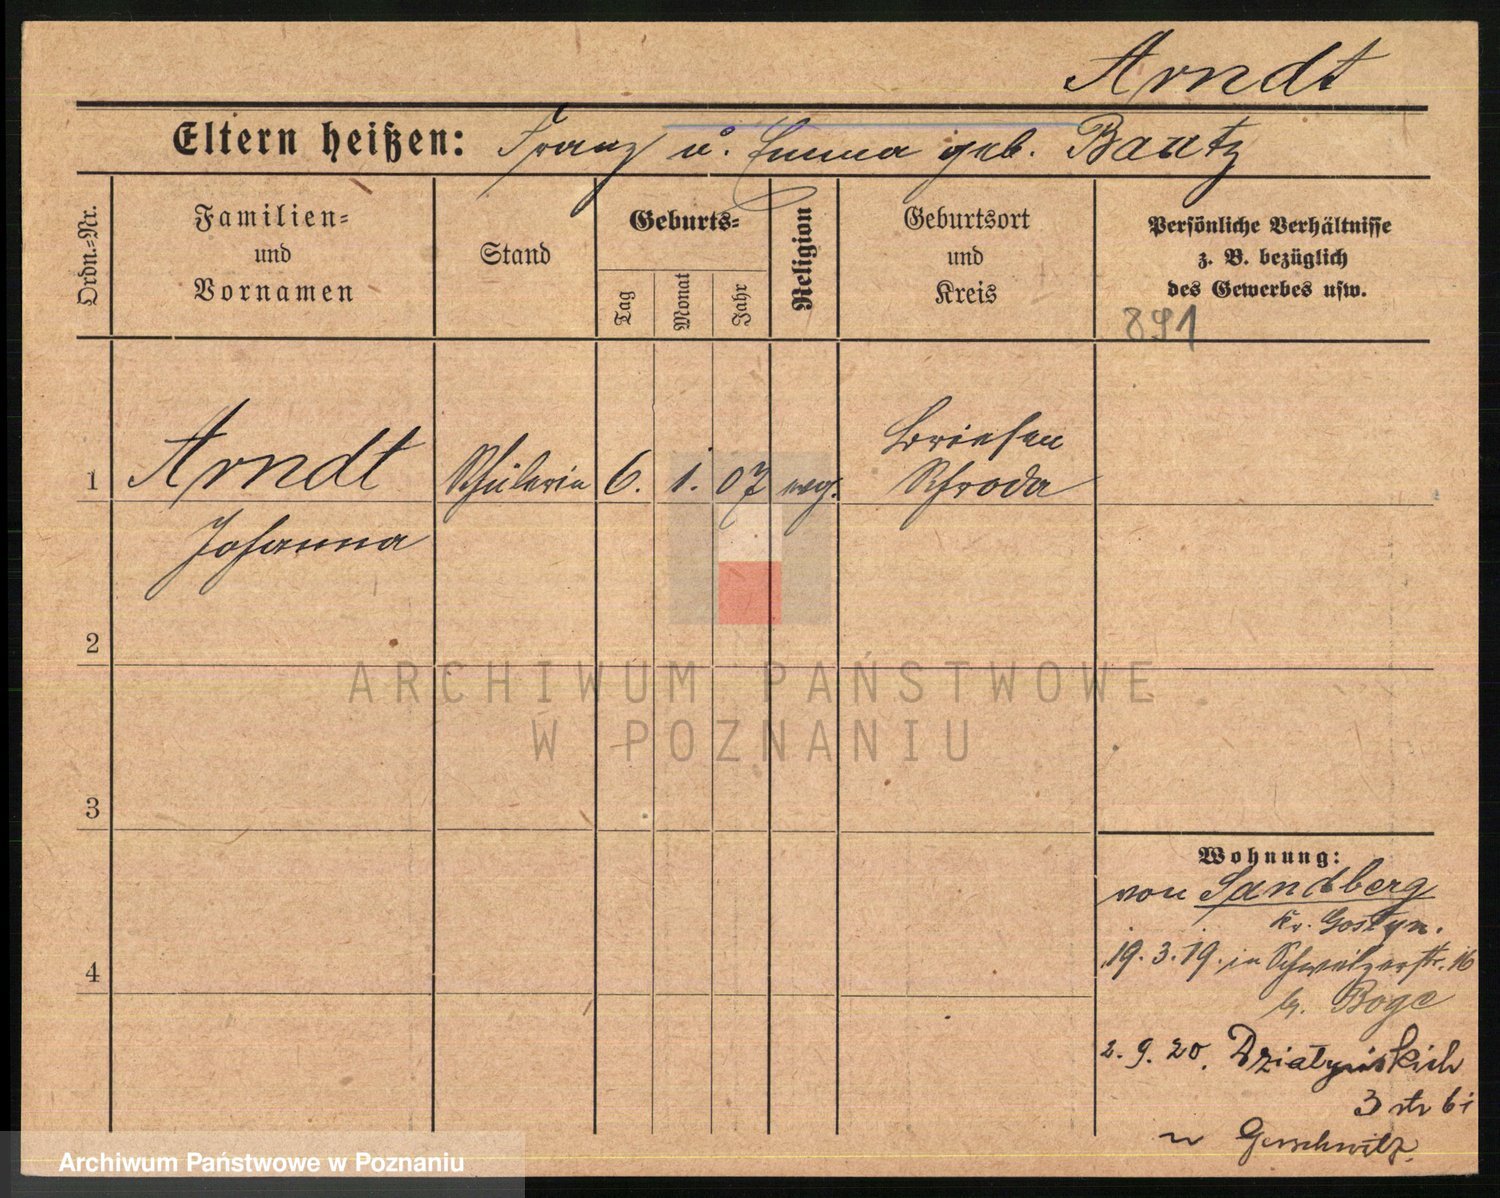 Arndt
Eltern heißen: Franz u. Emma geb. Bautz
Ordn.=Nr.
Familien=
und
Vornamen
Stand
Geburts=
Tag
Monat
Jahr
Religion
Geburtsort
und
Kreis
Persönliche Verhältnisse
z. B. bezüglich
des Gewerbes usw.
891
1
Arndt
Johanna
Schülerin
6. 1. 07
evg.
Briesen
Schroda
2
ARCHIWUM PAŃSTWOWE
W POZNANIU
3
Wohnung:
von Sandberg
Kr. Gostyn.
4
19.3.19. in Schweizerstr. 16
b. Boge
2.9.20. Działyńskich
3
Archiwum Państwowe w Poznaniu